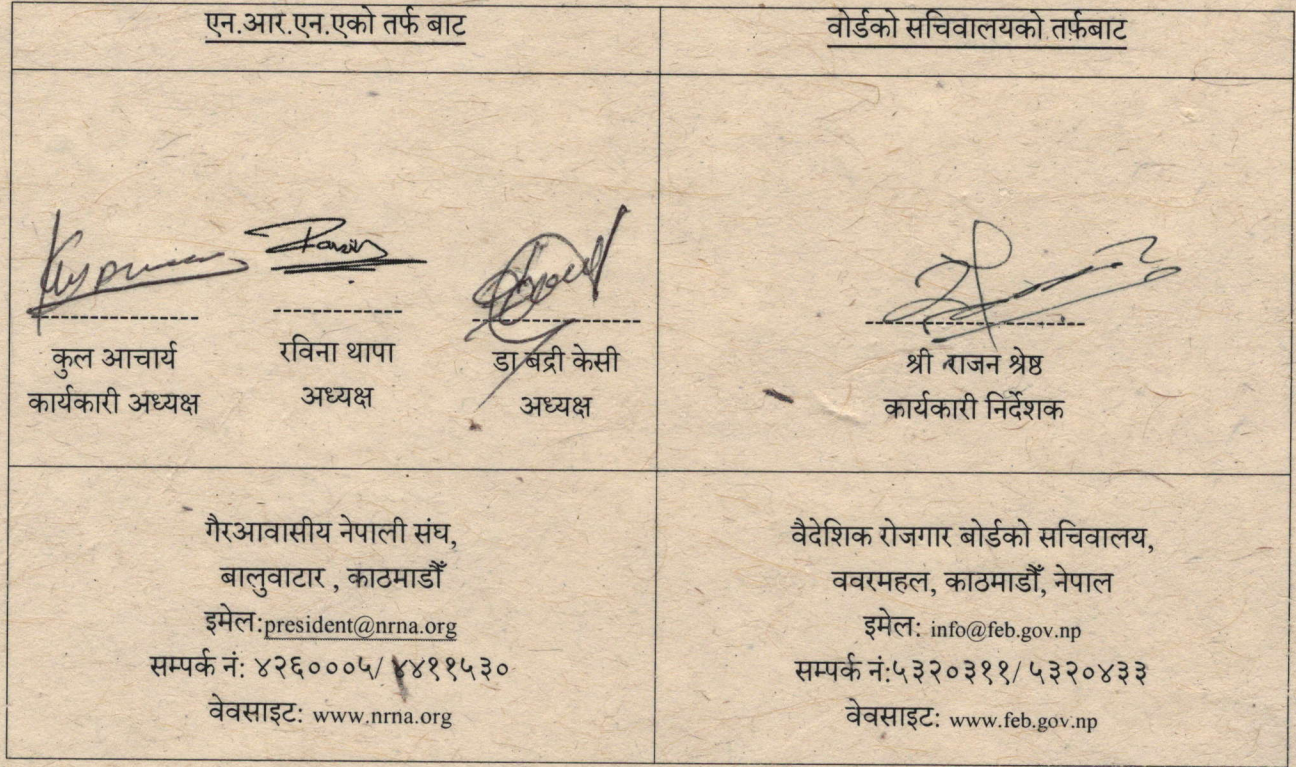 एन.आर.एन.एको तर्फ बाट
वोर्डको सचिवालयको तर्फबाट
कुल आचार्य
कार्यकारी अध्यक्ष
रविना थापा
अध्यक्ष
डा बद्री केसी
अध्यक्ष
श्री राजन श्रेष्ठ
कार्यकारी निर्देशक
गैरआवासीय नेपाली संघ,
बालुवाटार , काठमाडौँ
इमेल:president@nrna.org
सम्पर्क नं: ४२६०००५/ ४४११५३०
वेवसाइट: www.nrna.org
वैदेशिक रोजगार बोर्डको सचिवालय,
ववरमहल, काठमाडौँ, नेपाल
इमेल: info@feb.gov.np
सम्पर्क नं:५३२०३११/ ५३२०४३३
वेवसाइट: www.feb.gov.np